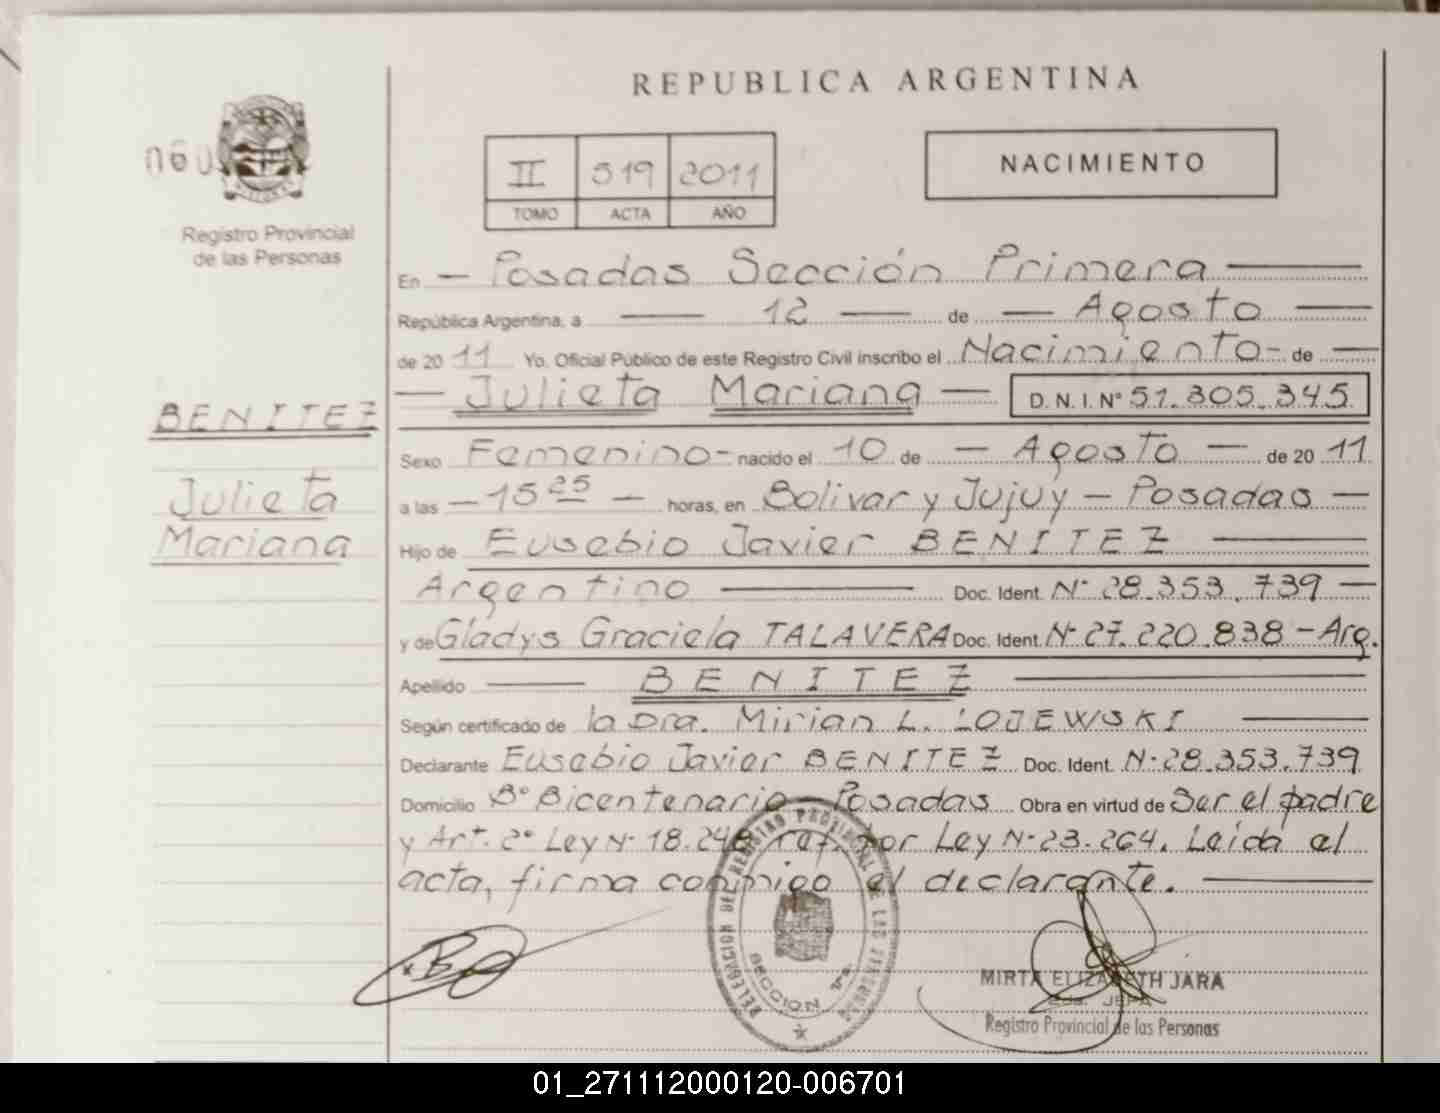 REPUBLICA ARGENTINA
060
Registro Provincial
de las Personas
II 519 2011
TOMO ACTA AÑO
NACIMIENTO
En — Posadas Sección Primera —
República Argentina, a — 12 — de — Agosto —
de 2011 Yo, Oficial Público de este Registro Civil inscribo el Nacimiento - de —
— Julieta Mariana — D. N. I. N° 51.305.345
BENITEZ
Julieta
Mariana
Sexo Femenino - nacido el 10 de — Agosto — de 2011
a las — 15 25 — horas, en Bolivar y Jujuy — Posadas —
Hijo de Eusebio Javier BENITEZ —
Argentino — Doc. Ident. N° 28.353.739 —
y de Gladys Graciela TALAVERA Doc. Ident. N° 27.220.838 - Arg.
Apellido — BENITEZ —
Según certificado de la Dra. Mirian L. LOJEWSKI —
Declarante Eusebio Javier BENITEZ Doc. Ident. N° 28.353.739
Domicilio B° Bicentenario - Posadas Obra en virtud de Ser el padre
y Art. 2° Ley N° 18.248 ref. por Ley N° 23.264. Leída el
acta, firma conmigo el declarante. —
DELEGACION DEL REGISTRO PROVINCIAL DE LAS PERSONAS
SECCION 1ra.
MIRTA ELIZABETH JARA
JEFA
Registro Provincial de las Personas
01_271112000120-006701